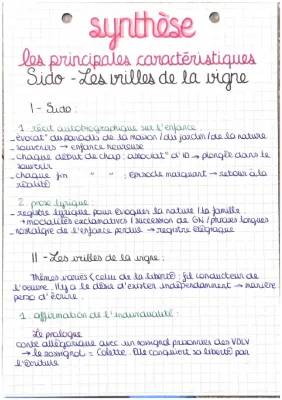 synthèse
les principales caractéristiques
Sido - Les vrilles de la vigne
I - Sido :
1. récit autobiographique sur l'enfance
- évocat° du paradis de la maison / du jardin / de la nature
- souvenirs → enfance heureuse
- chaque début de chap : évocat° d'1 → plongée dans le
souvenir
- chaque fin " " : épisode marquant → retour à la
réalité
2. prose lyrique
- registre lyrique pour évoquer la nature / la famille :
→ modalités exclamatives / succession de GN / phrases longues
- nostalgie de l'enfance perdue → registre élégiaque
II - Les vrilles de la vigne :
Thèmes variés (celui de la liberté : fil conducteur de
l'oeuvre. Il y a le désir d'exister indépendamment → manière
perso d'écrire.
1. affirmation de l'individualité :
Le prologue
conte allégorique avec un rossignol prisonnier des VDLV
→ le rossignol = Colette. Ils conquièrent sa liberté par
l'écriture